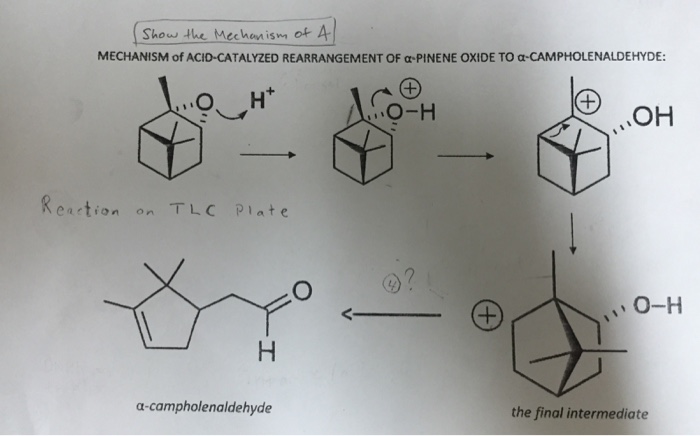 Show the Mechanism of A
MECHANISM of ACID-CATALYZED REARRANGEMENT OF α-PINENE OXIDE TO α-CAMPHOLENALDEHYDE:
O H⁺
⊕
O-H
⊕
OH
Reaction on TLC Plate
④?
O
H
⊕
O-H
α-campholenaldehyde
the final intermediate